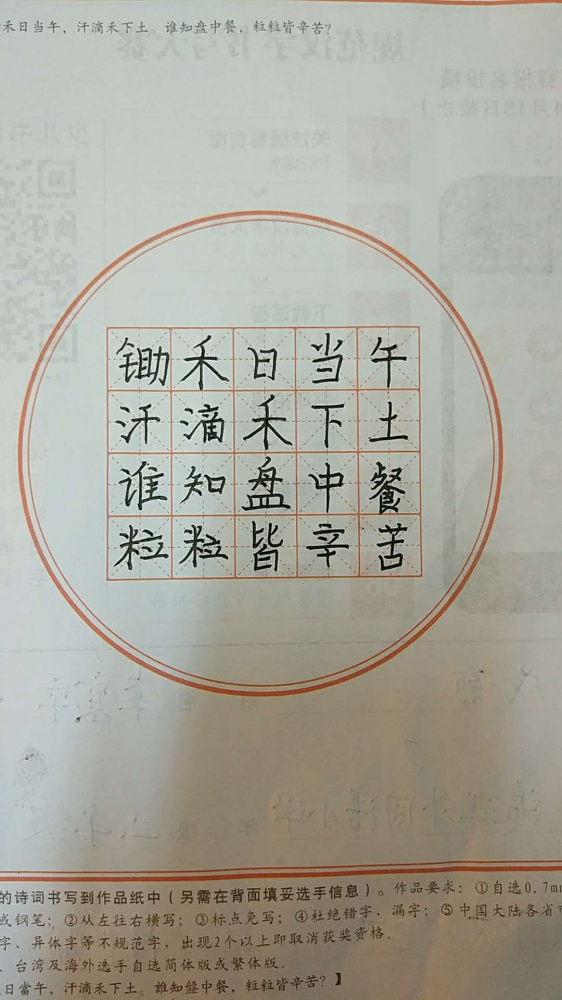 禾日当午，汗滴禾下土。谁知盘中餐，粒粒皆辛苦？
锄禾日当午
汗滴禾下土
谁知盘中餐
粒粒皆辛苦
的诗词书写到作品纸中（另需在背面填妥选手信息）。作品要求：①自选0.7m
或钢笔；②从左往右横写；③标点免写；④杜绝错字、漏字；⑤中国大陆各省市
字、异体字等不规范字，出现2个以上即取消获奖资格。
、台湾及海外选手自选简体版或繁体版。
日當午，汗滴禾下土。誰知盤中餐，粒粒皆辛苦？】